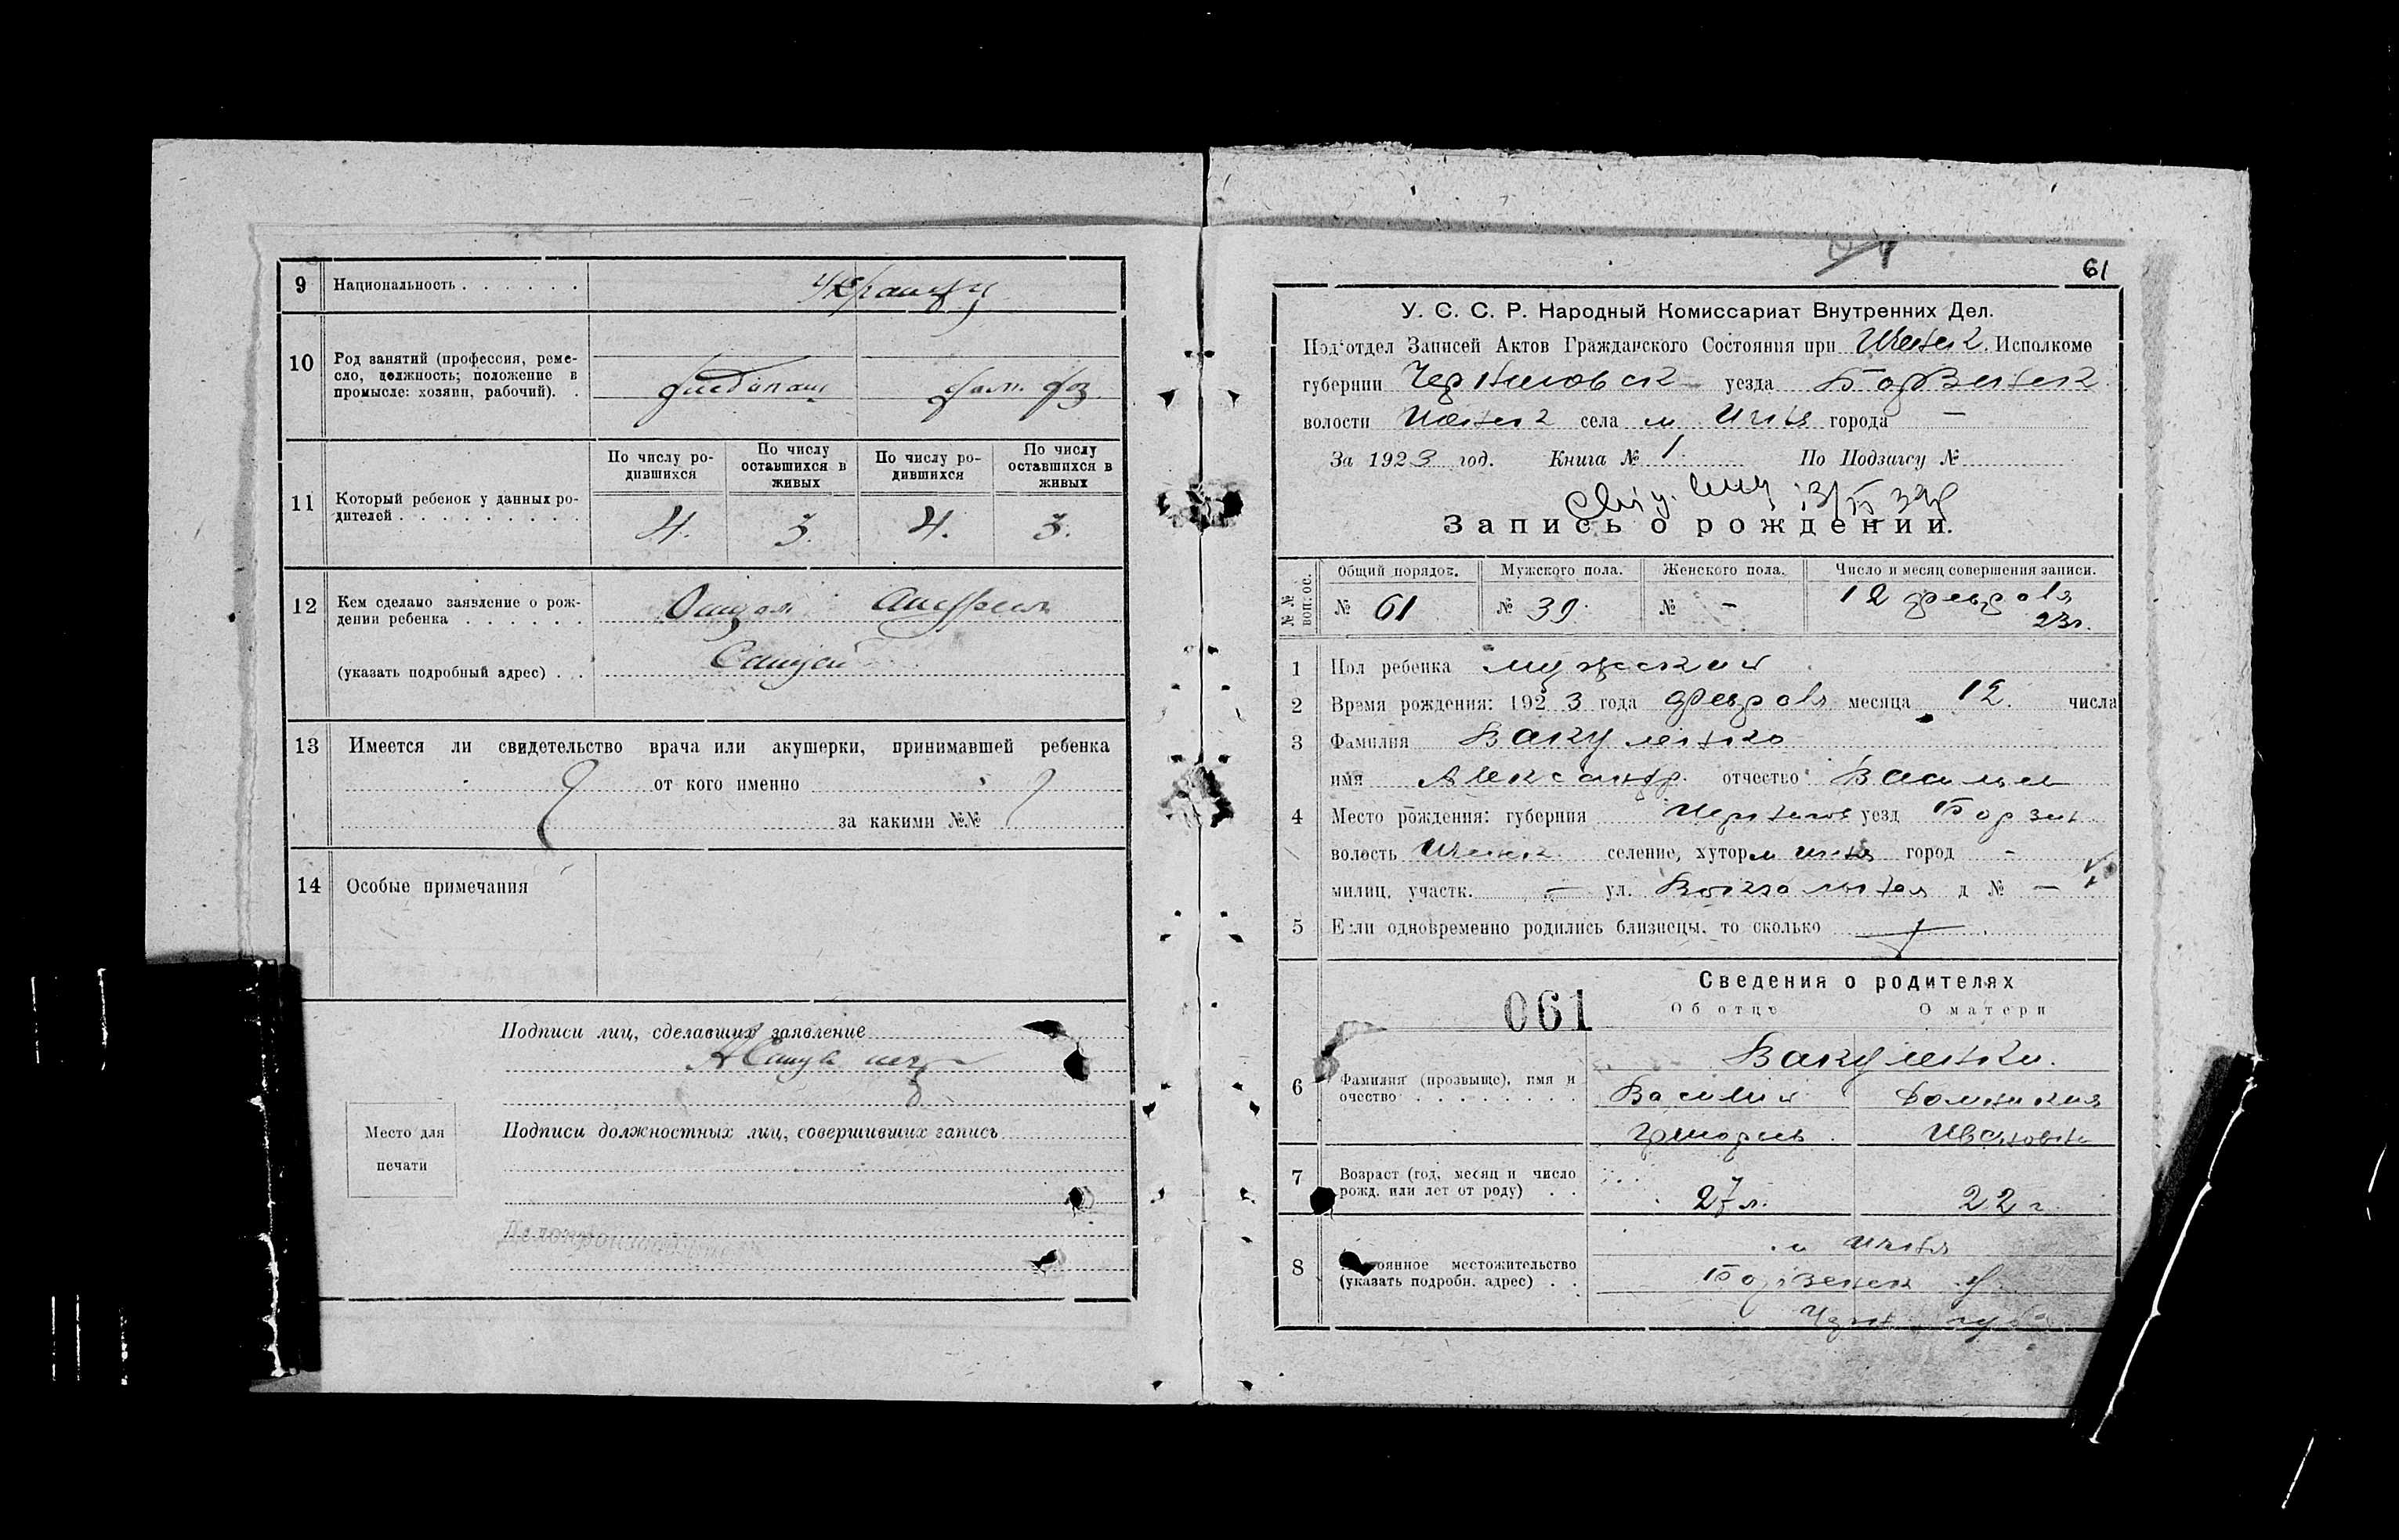 9 Национальность . . . . . .
10 Род занятий (профессия, реме-
сло, должность; положение в
промысле: хозяин, рабочий). .
хлебопаш
11 Который ребенок у данных ро-
дителей . . . . . . . . . .
По числу ро-
дившихся
По числу
оставшихся в
живых
По числу ро-
дившихся
По числу
оставшихся в
живых
4. 3. 4. 3.
12 Кем сделано заявление о рож-
дении ребенка . . . . . .
(указать подробный адрес) . .
13 Имеется ли свидетельство врача или акушерки, принимавшей ребенка
от кого именно
за какими №№
14 Особые примечания
Подписи лиц, сделавших заявление
Место для
печати
Подписи должностных лиц, совершивших запись
Делопроизводитель
61
У. С. С. Р. Народный Комиссариат Внутренних Дел.
Под‘отдел Записей Актов Гражданского Состояния при Иченск. Исполкоме
губернии Черниговск уезда Борзенск
волости Иченск села м Ичня города —
За 1923 год. Книга № 1. По Подзагсу №
Запись о рождении.
№№ вопрос.
Общий порядок. Мужского пола. Женского пола. Число и месяц совершения записи.
№ 61 № 39. № - 12 февраля
23г.
1 Пол ребенка мужский
2 Время рождения: 1923 года февраля месяца 12. числа
3 Фамилия Вакуленко
имя Александр. отчество Васильев
4 Место рождения: губерния Чернигов уезд Борзен.
волость Иченск селение, хутор м Ичня город -
милиц. участк. — ул. Вокзальная д № —
5 Если одновременно родились близнецы, то сколько
Сведения о родителях
061
Об отце О матери
6 Фамилия (прозвыще), имя и
очество . . . . . . . .
Вакуленки.
Василий Домникия
Григорьев Ивановна
7 Возраст (год, месяц и число
рожд. или лет от роду) . .
27 л. 22 г
8 Постоянное местожительство
(указать подробн. адрес) . .
м Ичня
Борзенск у.
Черн губ